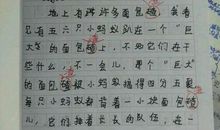 地上有许许多多面包碴，我看
见有五六只小蚂蚁趴在一个“巨
大”的面包碴上，不知它们在干
些什么，不一会儿，那个“巨大”
的面包碴小蚂蚁搞得四分五裂
每只小蚂蚁都背着一小块面包碴
儿，它们排着长长的队伍，在一